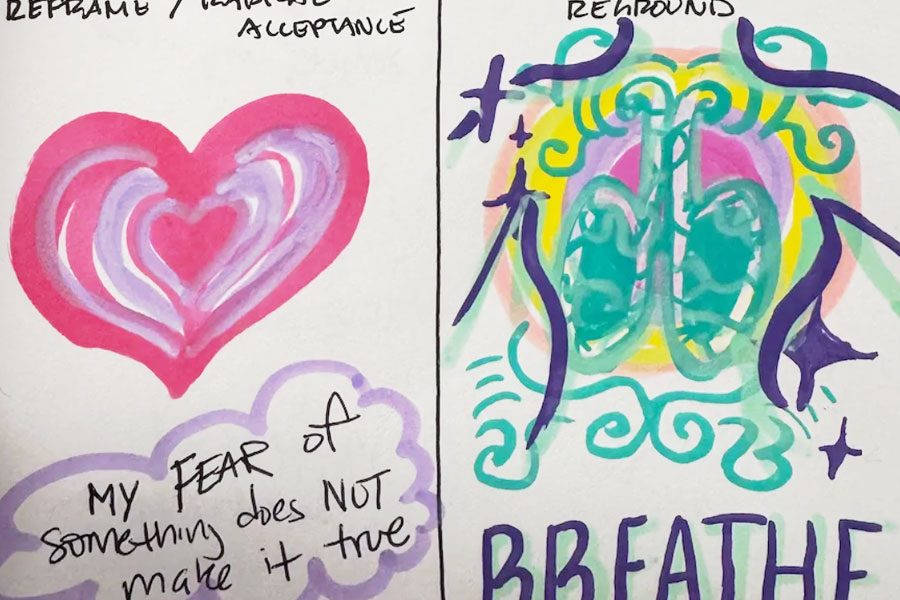 REFRAME / RADICAL
ACCEPTANCE
MY FEAR of
something does NOT
make it true
REGROUND
BREATHE